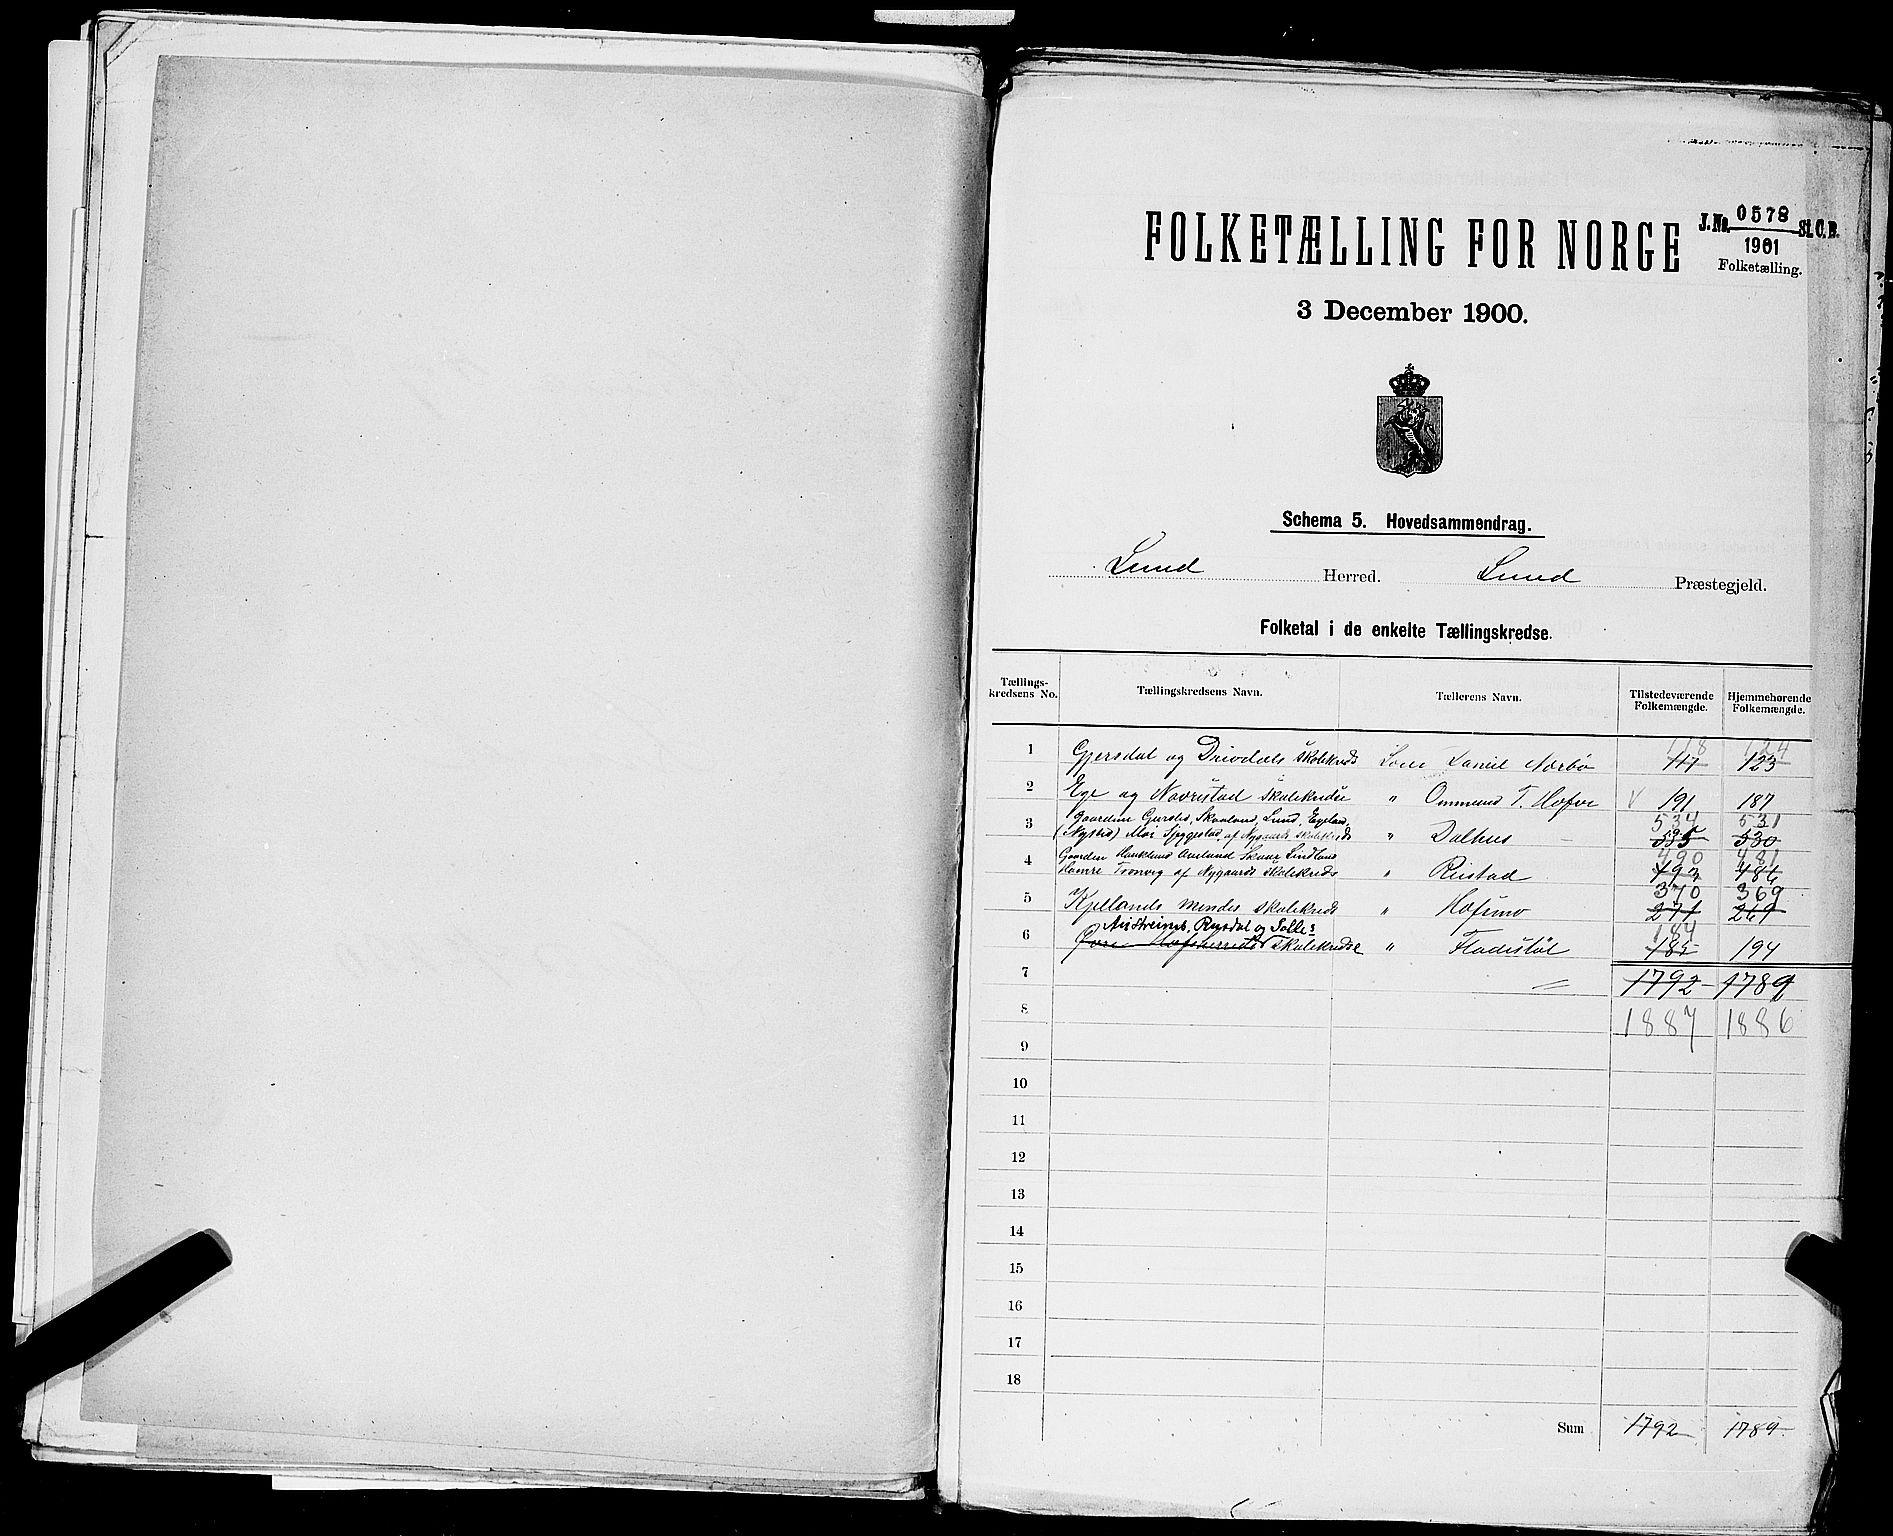 FOLKETÆLLING FOR NORGE
J.No. 0578 St.C.B.
1901
Folketælling.
3 December 1900.
Schema 5. Hovedsammendrag.
Lund Herred. Lund Præstegjeld.
Folketal i de enkelte Tællingskredse.
Tællings-kredsens No. Tællingskredsens Navn. Tællerens Navn. Tilstedeværende Folkemængde. Hjemmehørende Folkemængde.
118 124
1 Gjersdal og Drivdals skolekreds Daniel Nærbø 117 123
2 Ege og Navrestad skolekredse " Ommund T. Hofve V 191 187
Gaardene Skaaland, Lund, Eyeland, 534 531
3 (Nysted) Moi af Nygaards skolekreds " Dalhus 535 530
Gaarden Hauklund Lindland 490 481
4 Hamre af Nygaards skolekreds " Rustad 493 486
370 369
5 Kjellands Mindes skolekreds " Hofsmo 271 269
Austreims, Rusdal og Salle: 184
6 skolekredse " Fladstøl 185 194
7 1792 1789
8 1887 1886
9
10
11
12
13
14
15
16
17
18
Sum 1792 1789